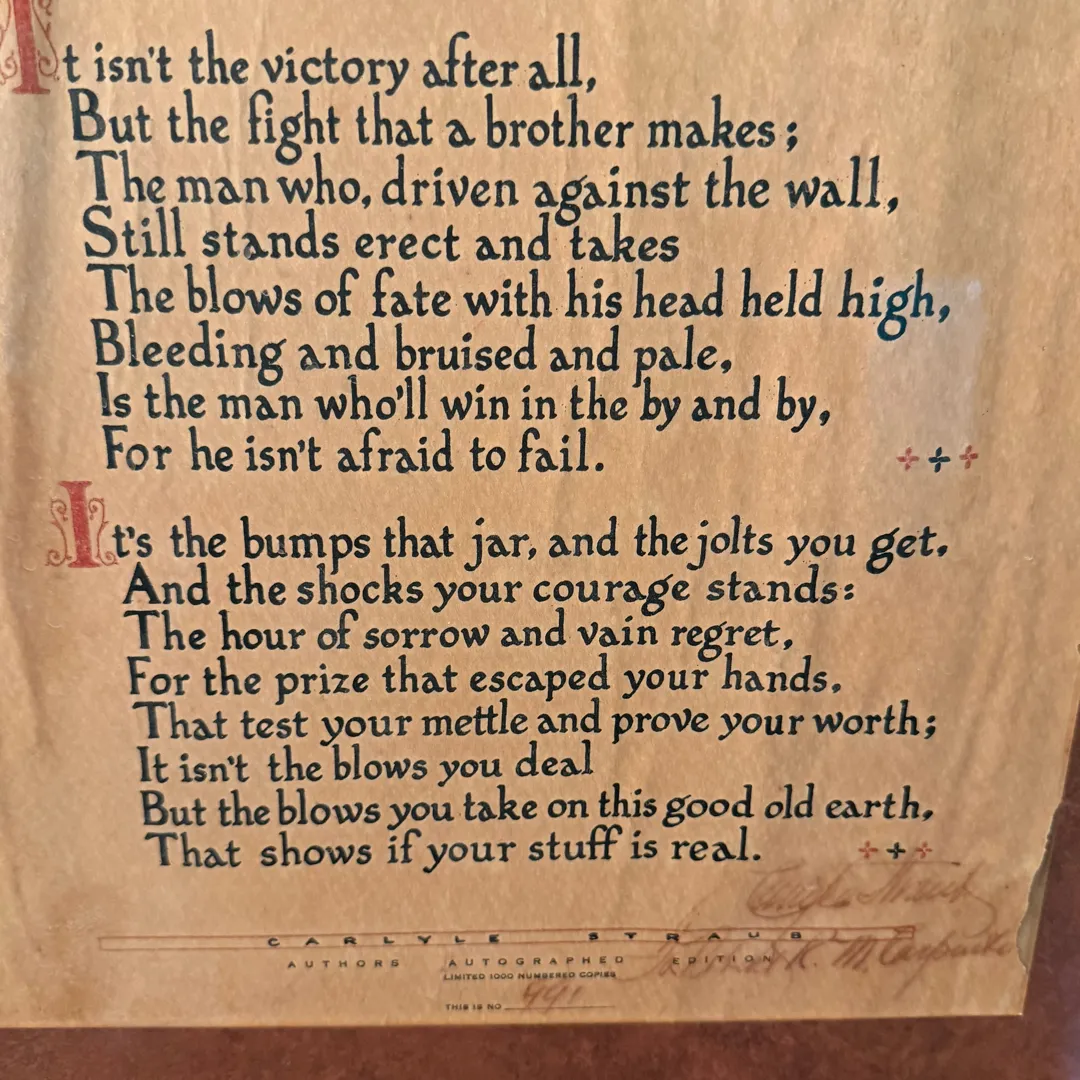 It isn't the victory after all,
But the fight that a brother makes;
The man who, driven against the wall,
Still stands erect and takes
The blows of fate with his head held high,
Bleeding and bruised and pale,
Is the man who'll win in the by and by,
For he isn't afraid to fail.
It's the bumps that jar, and the jolts you get,
And the shocks your courage stands:
The hour of sorrow and vain regret,
For the prize that escaped your hands,
That test your mettle and prove your worth;
It isn't the blows you deal
But the blows you take on this good old earth,
That shows if your stuff is real.
Carlyle Straub
CARLYLE STRAUB
AUTHORS AUTOGRAPHED EDITION
LIMITED 1000 NUMBERED COPIES
THIS IS NO